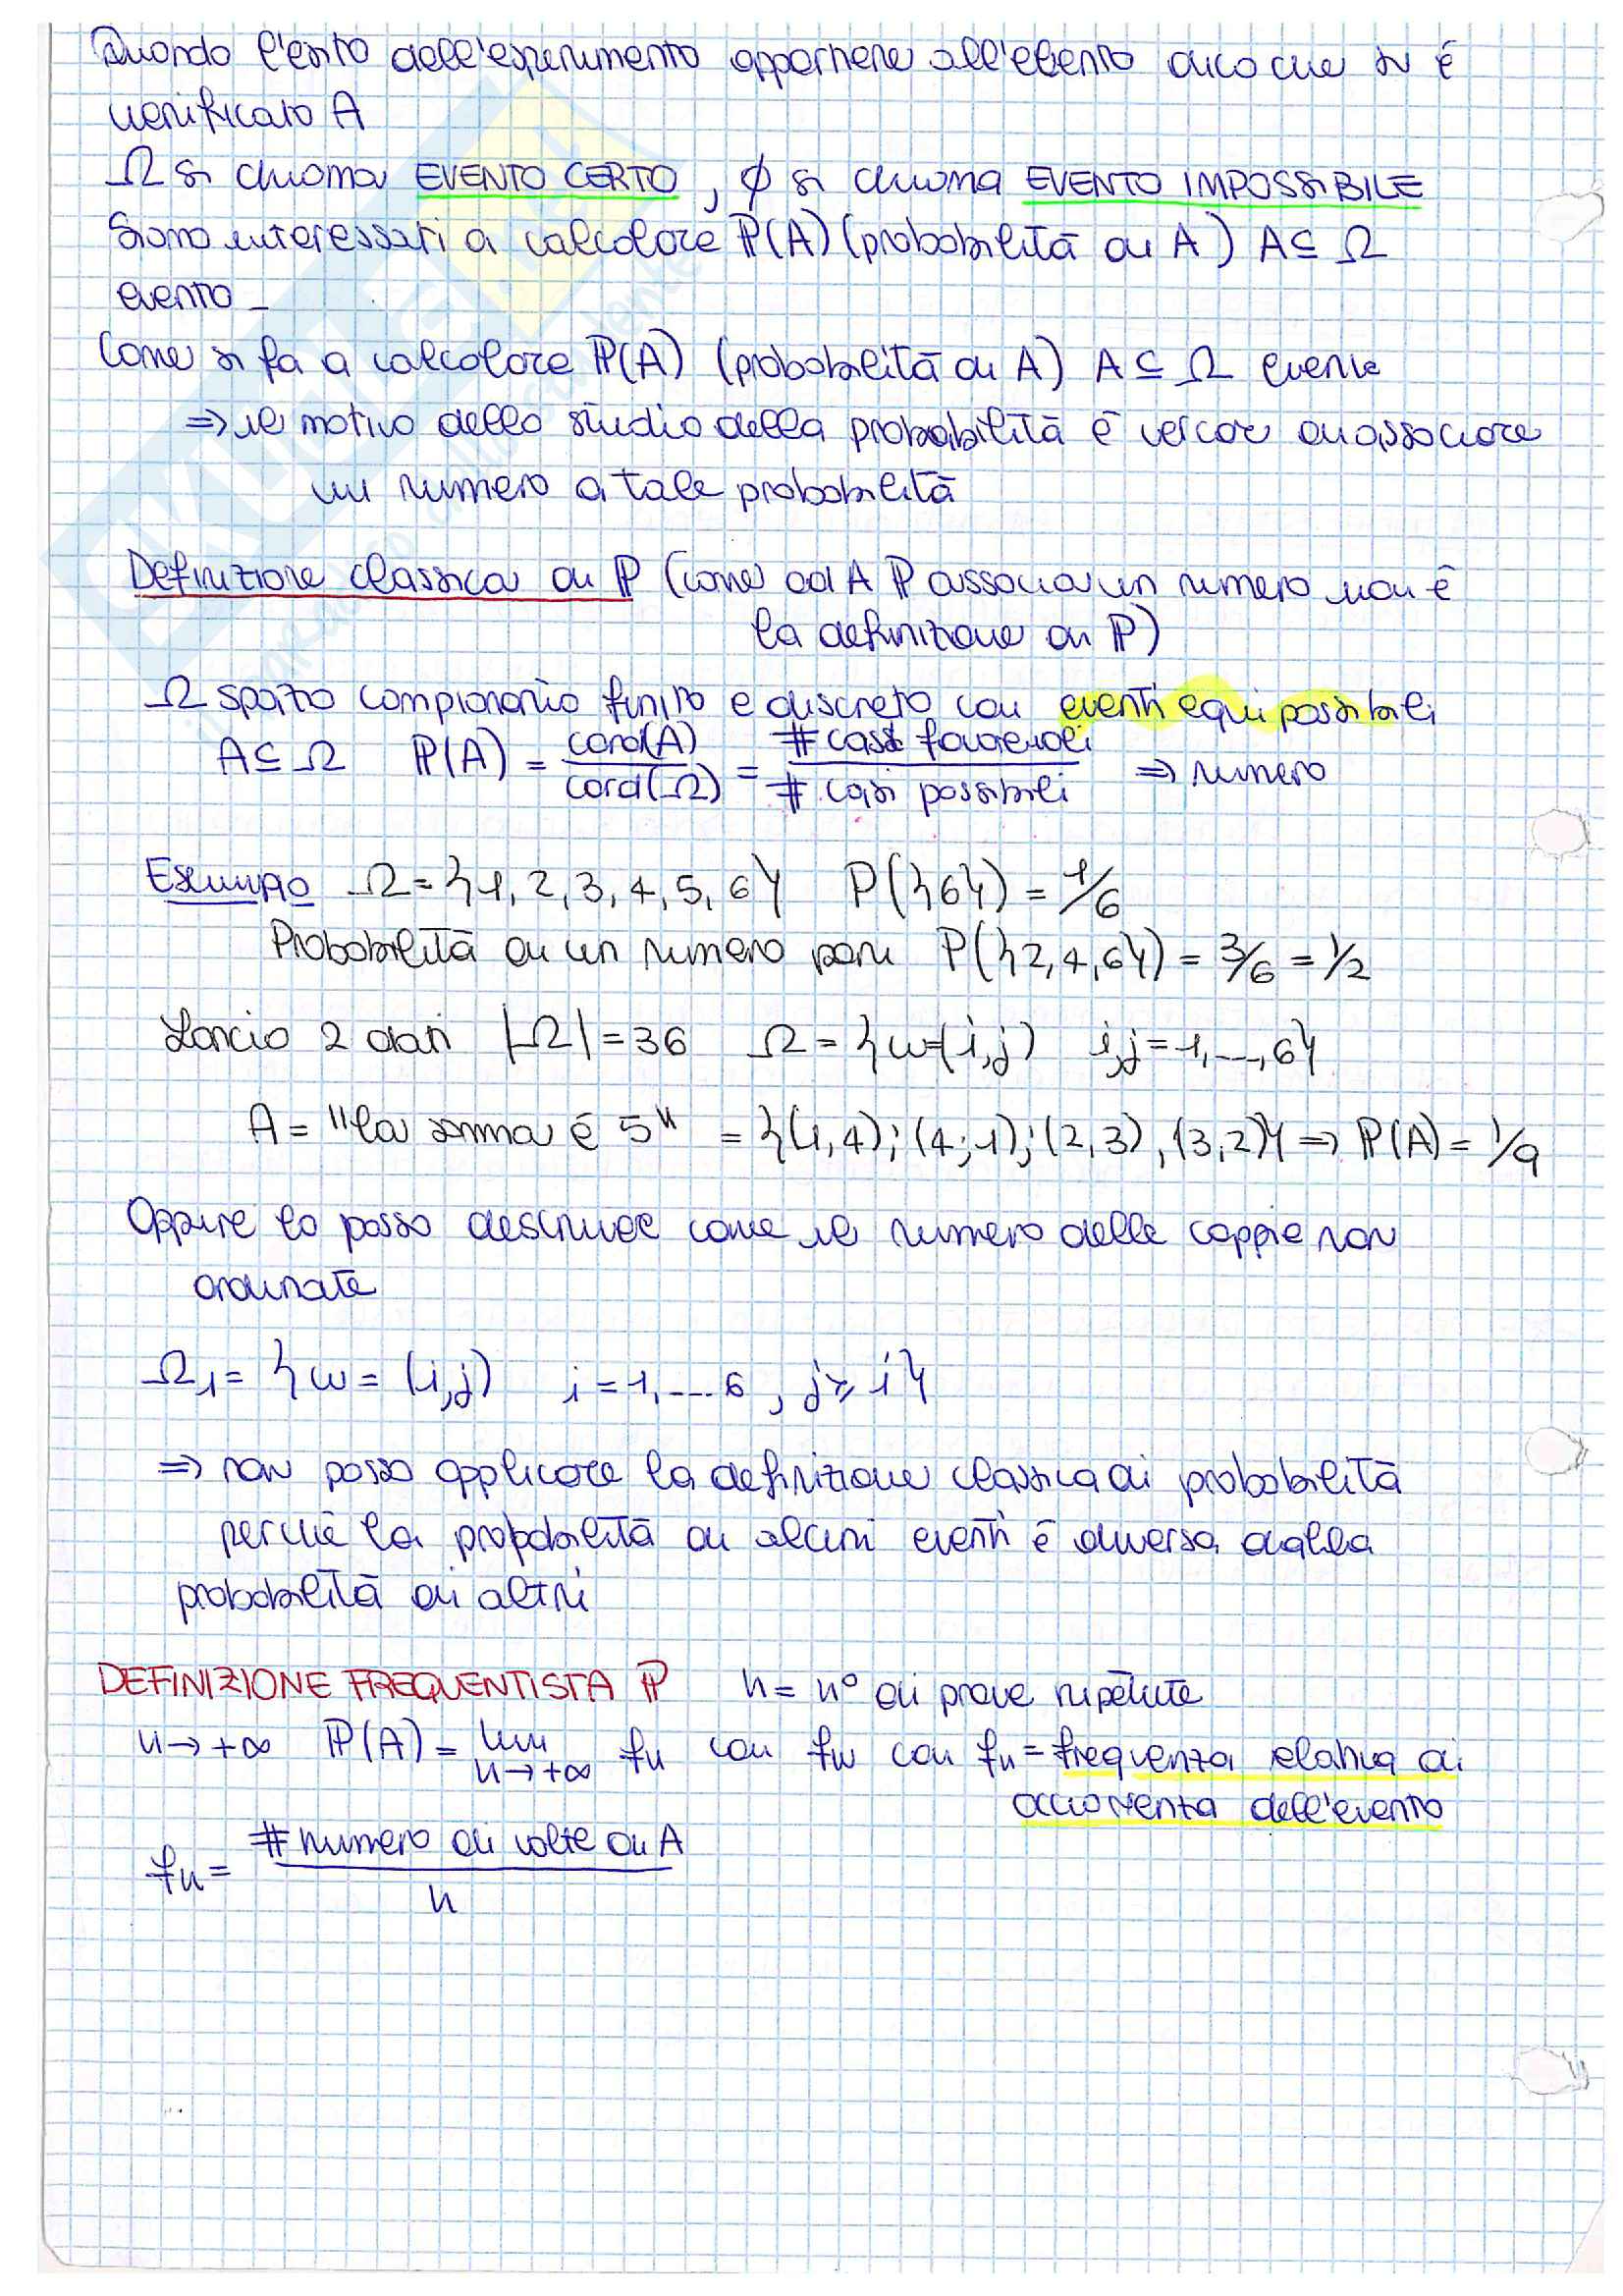 Quando l'esito dell'esperimento appartiene all'evento dico che si è
verificato A
Ω si chiama EVENTO CERTO, ∅ si chiama EVENTO IMPOSSIBILE
Siamo interessati a calcolare ℙ(A) (probabilità di A) A ⊆ Ω
evento
Come si fa a calcolare ℙ(A) (probabilità di A) A ⊆ Ω evento
⇒ il motivo dello studio della probabilità è cercare di associare
un numero a tale probabilità
Definizione classica di ℙ (come ad A ℙ associa un numero non è
la definizione di ℙ)
Ω spazio campionario finito e discreto con eventi equipossibili
A ⊆ Ω ℙ(A) = card(A)/card(Ω) = # casi favorevoli/# casi possibili ⇒ numero
Esempio Ω = {1, 2, 3, 4, 5, 6} P({6}) = 1/6
Probabilità di un numero pari P({2, 4, 6}) = 3/6 = 1/2
Lancio 2 dadi |Ω| = 36 Ω = {ω=(i,j) i,j = 1, ..., 6}
A = "la somma è 5" = {(1,4); (4;1); (2,3), (3,2)} ⇒ ℙ(A) = 1/9
Oppure lo posso descrivere come il numero delle coppie non
ordinate
Ω₁ = {ω = (i,j) i = 1, ... 6, j ≥ i}
⇒ non posso applicare la definizione classica di probabilità
perchè la probabilità di alcuni eventi è diversa dalla
probabilità di altri
DEFINIZIONE FREQUENTISTA ℙ n = n° di prove ripetute
n → +∞ ℙ(A) = lim n→+∞ fn con fn con fn = frequenza relativa di
occorrenza dell'evento
fn = # numero di volte di A / n